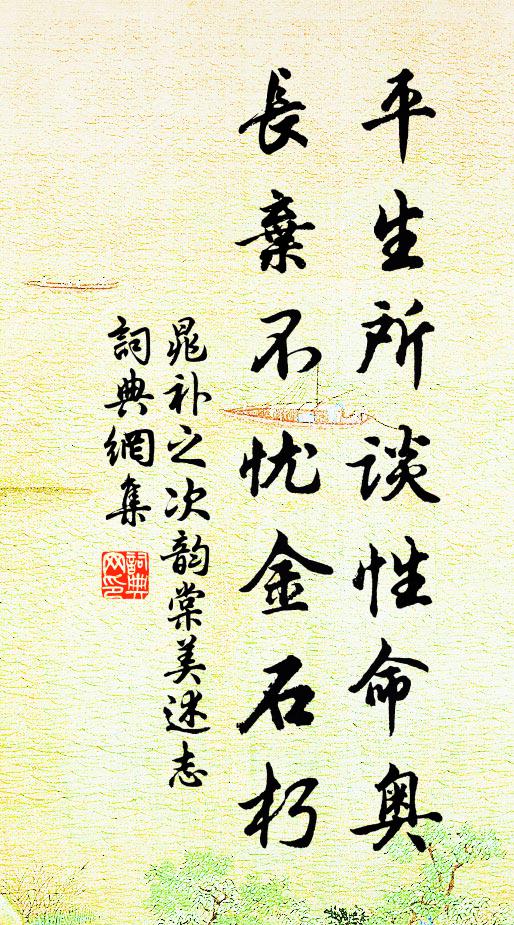 平生所谈性命奥
長棄不忧金石朽
晁补之次韵棠美述志
詞典網集
詞典网印